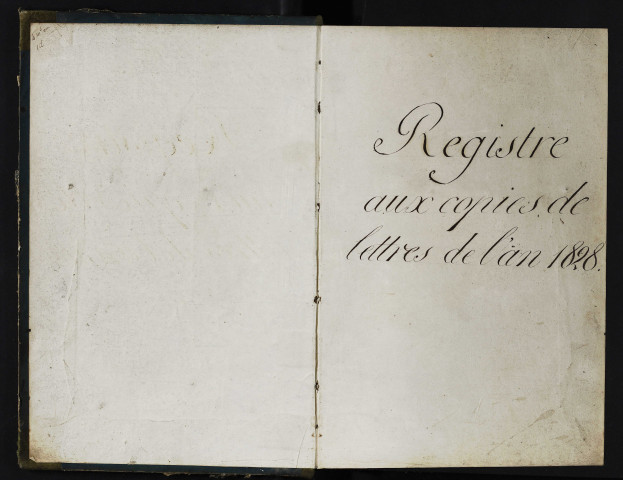 Registre
aux copies de
lettres de l'an 1828.